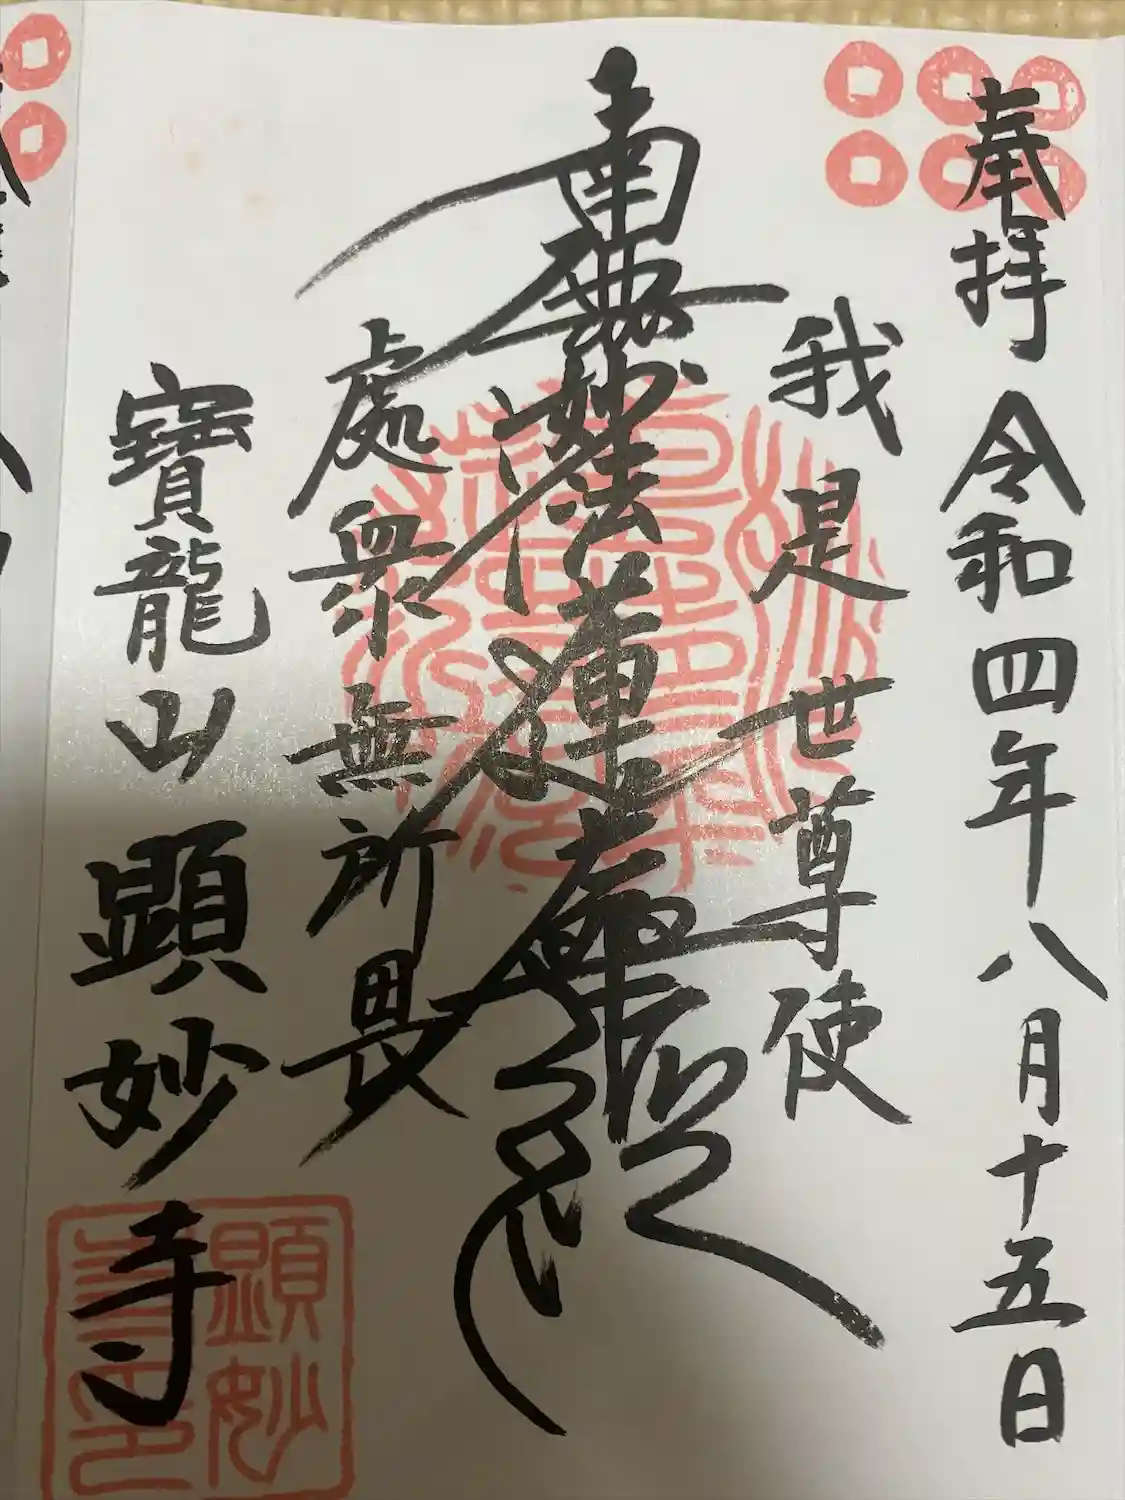 奉拝 令和四年八月十五日
我是世尊使
南無妙法蓮華経
處衆無所畏
寶龍山 顕妙寺
顕妙